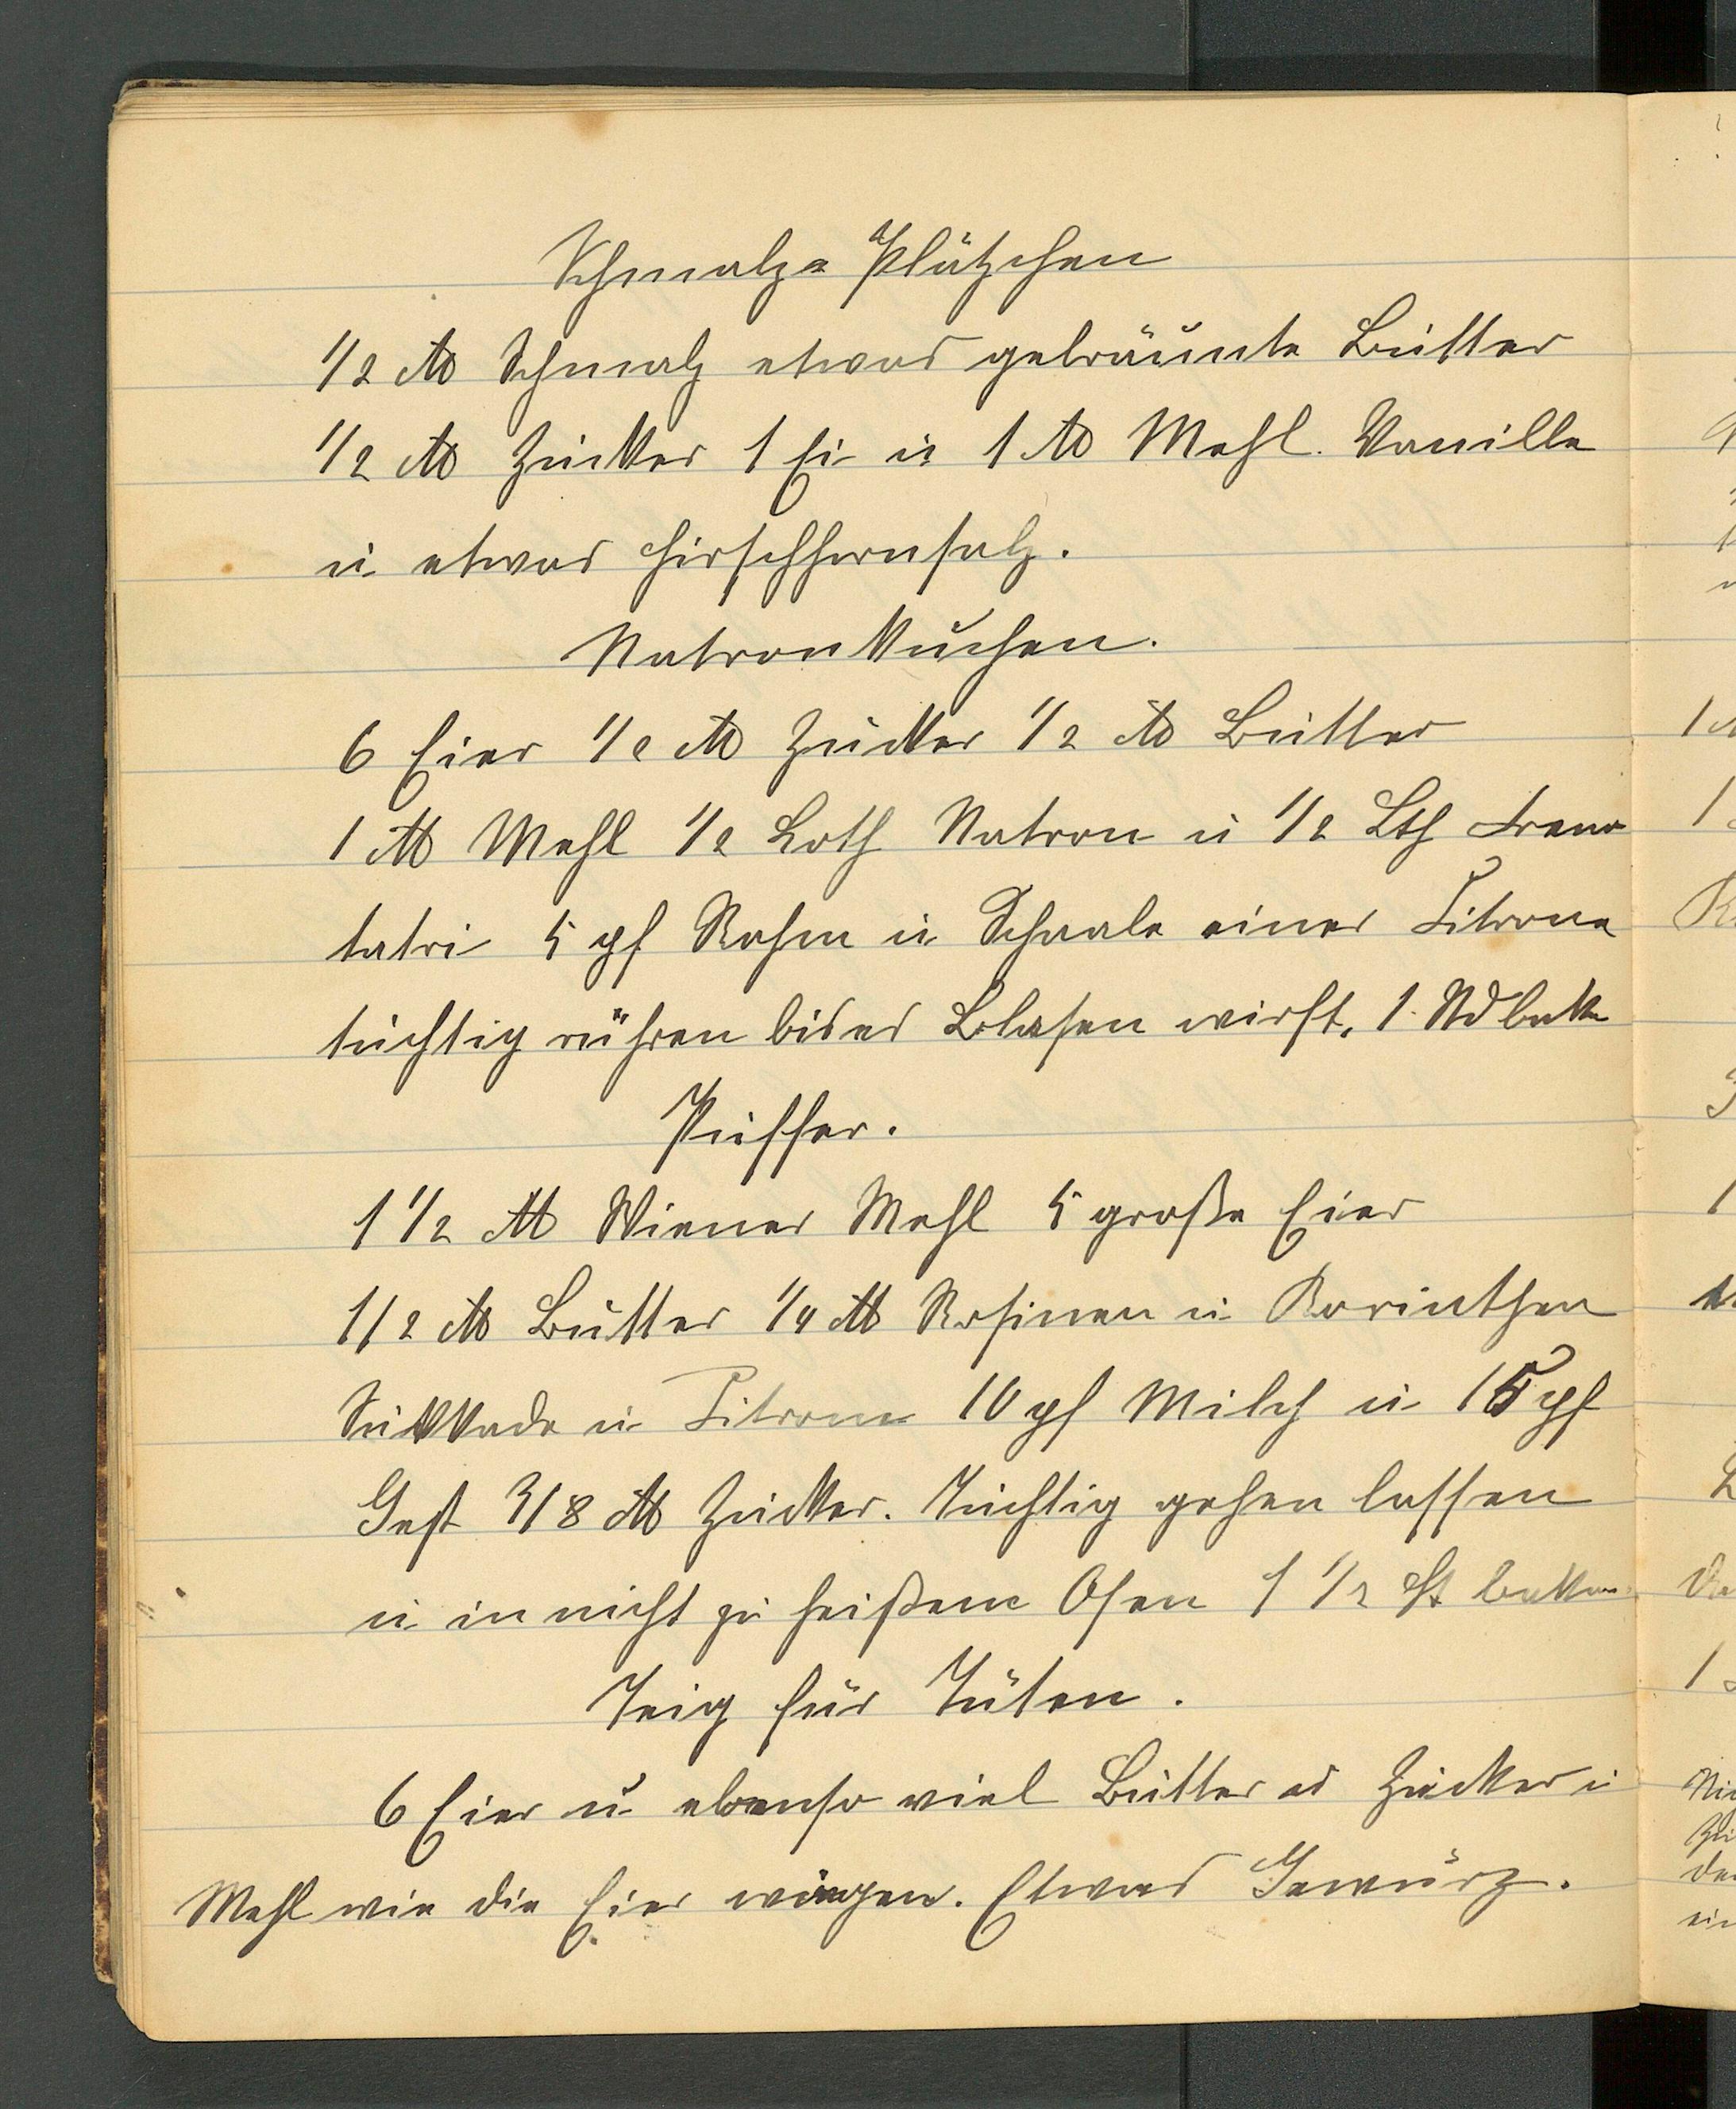 Schmalz-Plätzchen
1/2 ℔ Schmalz etwas gebräunte Butter
1/2 ℔ Zucker 1 Ei u 1 ℔ Mehl. Vanille
u etwas Hirschhornsalz.
Natronkuchen.
6 Eier 1/2 ℔ Zucker 1/2 ℔ Butter
1 ℔ Mehl 1/2 Loth Natron u 1/2 Lth
tatri 5 pf Rahm u Schaale einer Citrone
tüchtig rühren bis es Blasen wirft, 1 Std backen
Puffer.
1 1/2 ℔ Wiener Mehl 5 große Eier
1/2 ℔ Butter 1/4 ℔ Rosinen u Korinthen
Sukkade u Citrone 10 pf Milch u 15 pf
Gest 3/8 ℔ Zucker. Tüchtig gehen lassen
u in nicht zu heißem Ofen 1 1/2 St backen
Teig für Tüten.
6 Eier u ebenso viel Butter as Zucker u
Mehl wie die Eier wiegen. Etwas Gewürz.